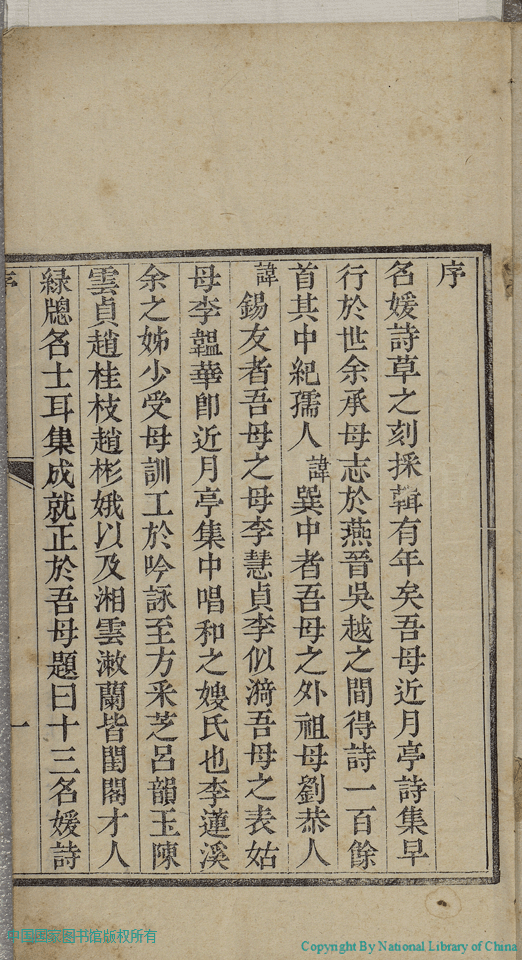 序
名媛詩草之刻採輯有年矣吾母近月亭詩集早
行於世余承母志於燕晉吳越之間得詩一百餘
首其中紀孺人諱巽中者吾母之外祖母劉恭人
諱錫友者吾母之母李慧貞李似漪吾母之表姑
母李韞華卽近月亭集中唱和之嫂氏也李蓮溪
余之姊少受母訓工於吟詠至方采芝呂韻玉陳
雲貞趙桂枝趙彬娥以及湘雲潄蘭皆閨閣才人
緑牕名士耳集成就正於吾母題曰十三名媛詩
序
一
中国国家图书馆版权所有
Copyright By National Library of China